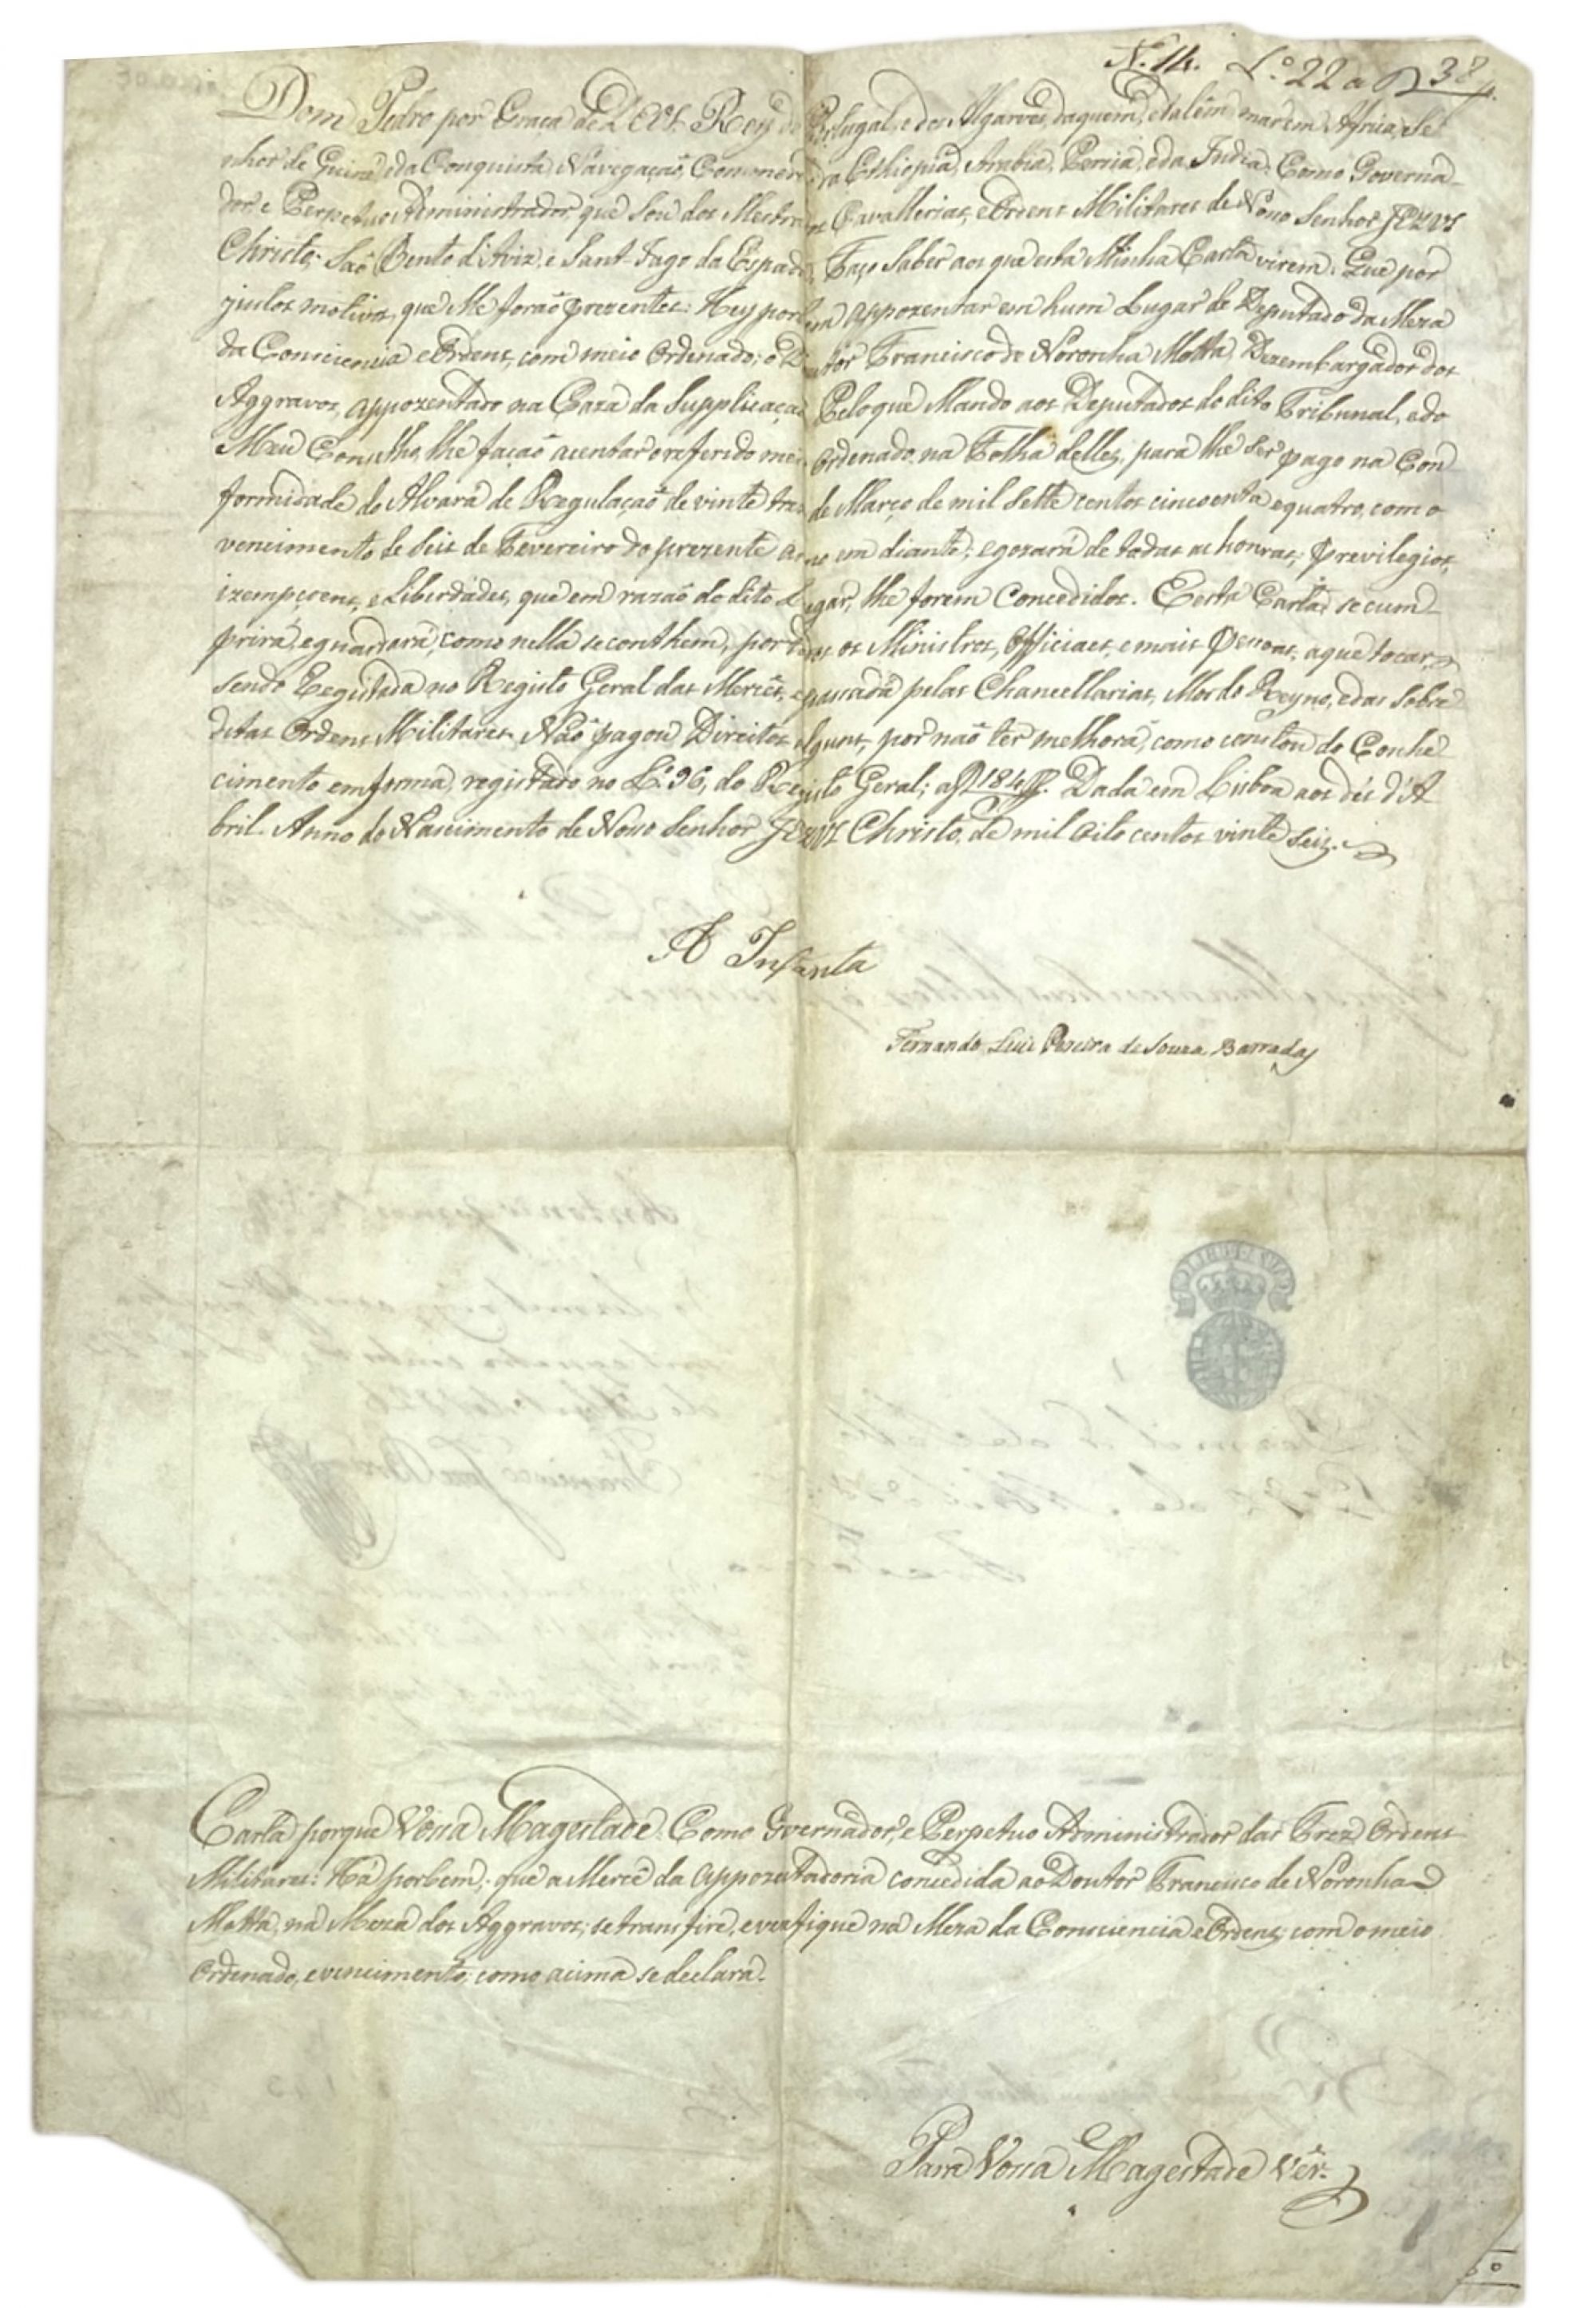 N. 14. L.º 22 a f 38
Dom Pedro por Graça de DEOS Rey de Portugal, e dos Algarves, daquem, e dalém mar em Africa, Se
nhor de Guiné, e da Conquista, Navegaçaõ, Commercio da Ethiopia, Arabia, Percia, e da India. Como Governa-
dor, e Perpetuo Administrador, que Sou dos Mestrados Cavallerias, e Ordens Militares de Nosso Senhor JEZUS
Christo, Saõ Bento d'Aviz, e Sant-Iago da Espada. Faço Saber aos que esta Minha Carta virem: Que por
justos motivos, que Me foraõ prezentes: Hey por bem appozentar em hum Lugar de Deputado da Meza
da Consciencia e Ordens, com meio Ordenado, o Doutor Francisco de Noronha Motta, Dezembargador dos
Aggravos, appozentado na Caza da Supplicaçaõ. Pelo que Mando aos Deputados do dito Tribunal, e do
Meu Conselho, lhe façaõ acentar o referido meio Ordenado, na Folha delles, para lhe ser pago na Con
formidade do Alvará de Regulaçaõ de vinte tres de Março de mil sette centos cincoenta e quatro, com o
vencimento de seis de Fevereiro do prezente anno em diante; e gozará de todas as honras, previlegios,
izempçoens, e Liberdades, que em razaõ do dito Lugar, lhe forem Concedidos. E esta Carta, se cum-
prirá, e guardará, como nella se conthem, por todos os Ministros, Officiaes, e mais Pessoas, a que tocar,
sendo Registada no Registo Geral das Mercês, e passada pelas Chancellarias, Mor do Reyno, e das Sobre
ditas Ordens Militares. Naõ pagou Direitos alguns, por naõ ter melhora, como constou do Conhe
cimento em forma, registado no L.º 96, do Registo Geral; a f 184 Dada em Lisboa aos dés d'A
bril. Anno do Nascimento de Nosso Senhor JEZUS Christo, de mil Oito centos vinte seis.
A Infanta
Fernando Luis Pereira de Souza Barradas
Carta porque Vossa Magestade Como Governador, e Perpetuo Administrador das Trez Ordens
Militares: Há por bem, que a Mercê da appozentadoria concedida ao Doutor Francisco de Noronha
Motta, na Meza dos Aggravos, se transfira, e verifique na Meza da Consciencia e Ordens, com o meio
Ordenado, e vencimento, como acima se declara.
Para Vossa Magestade Vêr.